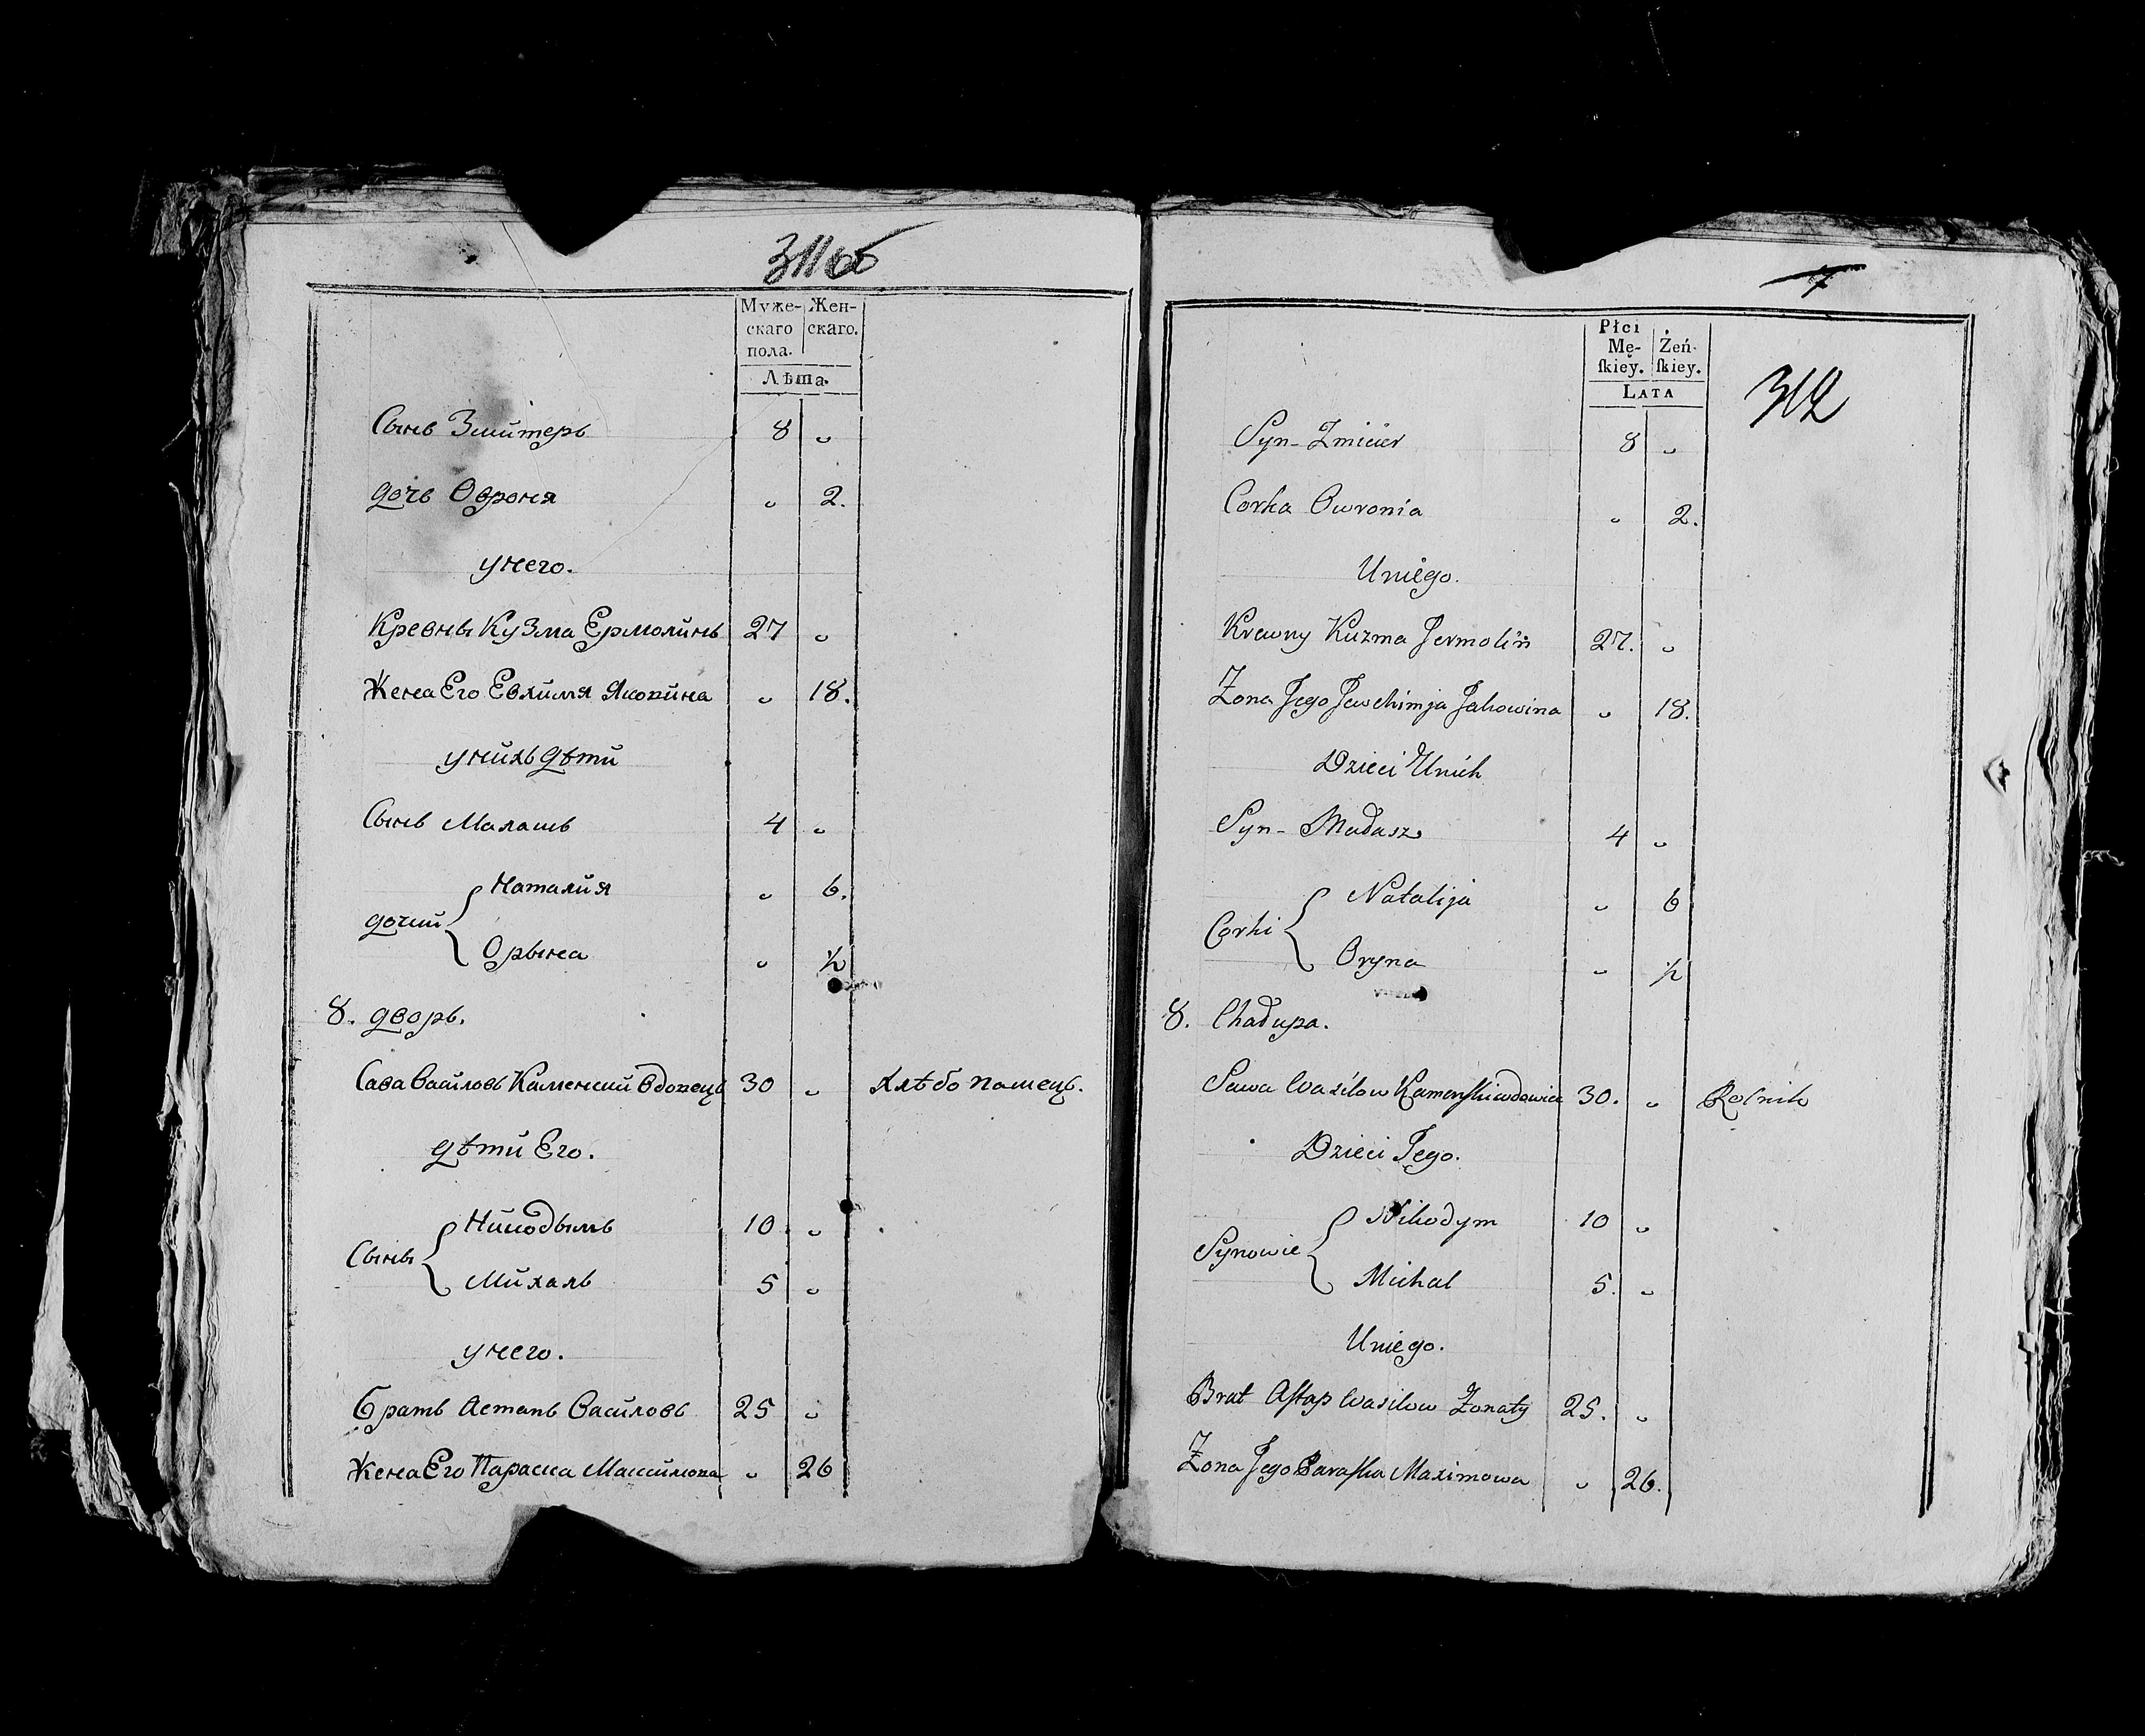 311 об
Муже- Жен-
скаго скаго.
пола.
Лѣта.
Сынъ Змитеръ 8 "
дочь Овроня " 2.
унего.
Кревны Кузма Ермолинъ 27 "
Жена Его Евхимя Яковина " 18.
унихъ дѣти
Сынъ Малашъ 4 "
дочки { Наталия " 6.
Орына " ½
8. дворъ.
Сава Василовъ Каменски вдовецъ 30 " хлѣбопашецъ.
дѣти Его.
Сыны { Никодымъ 10 "
Михалъ 5 "
унего.
братъ Астапъ Василовъ 25 "
Жена Его Параска Максимова " 26
7
Płci
Mę- Żeń-
ſkiey. ſkiey.
LATA
312
Syn - Zmicier 8 "
Corka Owronia " 2.
Uniego.
Krewny Kuzma Jermolin 27. "
Zona Jego Jewchimja Jakowina " 18.
Dzieci Unich
Syn - Małasz 4 "
Corki { Natalija " 6
Oryna " ½
8. Chałupa.
Sawa Wasilow Kamenſki wdowiec 30. " Rolnik
Dzieci Jego.
Synowie { Nikodym 10 "
Michal 5. "
Uniego.
Brat Aſtap Wasilow Żonaty 25. "
Zona Jego Paraſka Maximowa " 26.